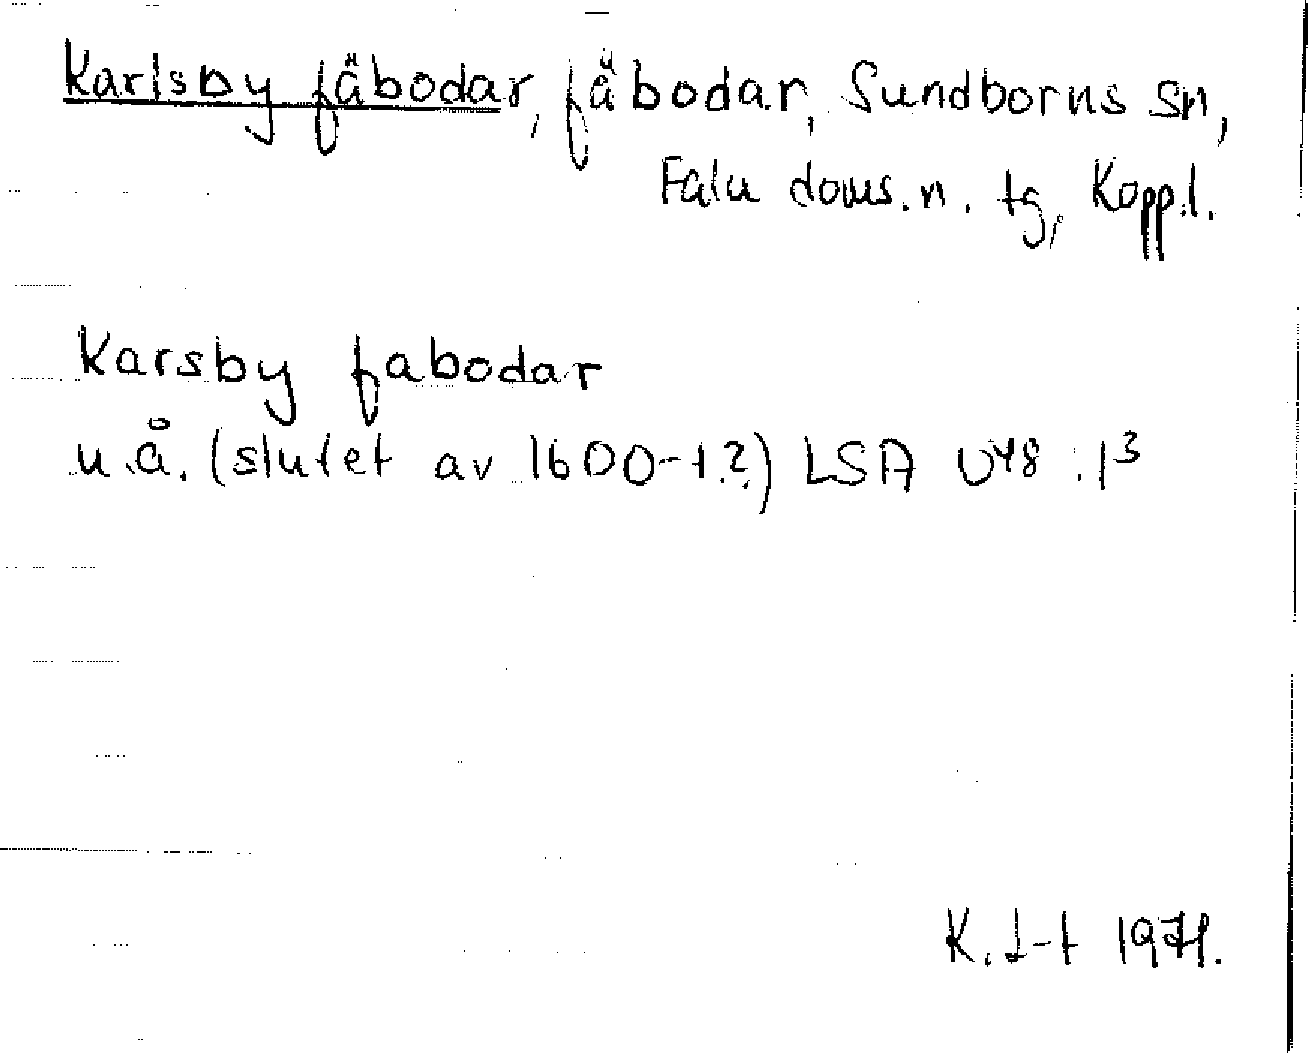 Karlsby fäbodar, fäbodar, Sundborns sn,
Falu doms.n. tg, Kopp.l.
Karsby fabodar
u.å. (slutet av 1600-t.?) LSA U48:1³
K. I-t 1971.